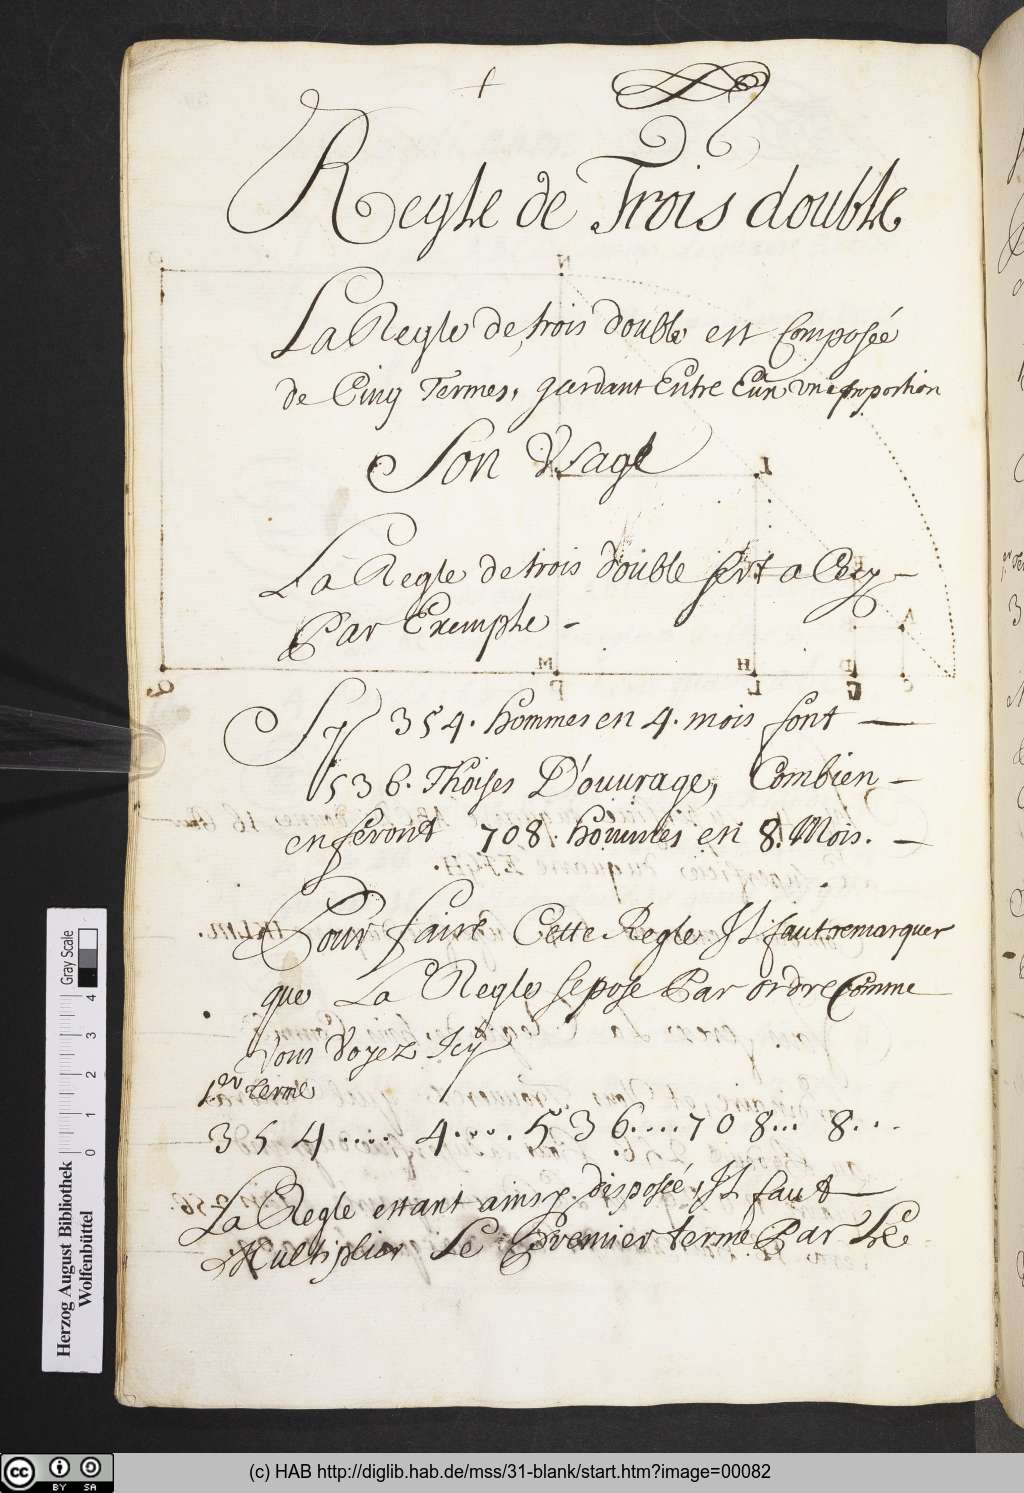 Regle de Trois double
La Regle de trois double est Composée
de Cinq Termes, gardant Entre Eux une proportion
Son Vsage
La Regle de trois double sert a Cecy -
Par Exemple -
Sy 354. hommes en 4. mois font —
536. Thoises D'ouurage, Combien -
en feront 708. hommes en 8. Mois. -
Pour faire Cette Regle Il faut remarquer
que La Regle se pose Par ordre Comme
Vous Voyez Icy
1.er terme
3 5 4 .... 4 .... 5 3 6 .... 7 0 8 ... 8 ...
La Regle estant ainsy disposée, Il faut
Multiplier Le Premier terme Par Le
Gray Scale
0 1 2 3 4
Herzog August Bibliothek
Wolfenbüttel
cc BY SA
(c) HAB http://diglib.hab.de/mss/31-blank/start.htm?image=00082